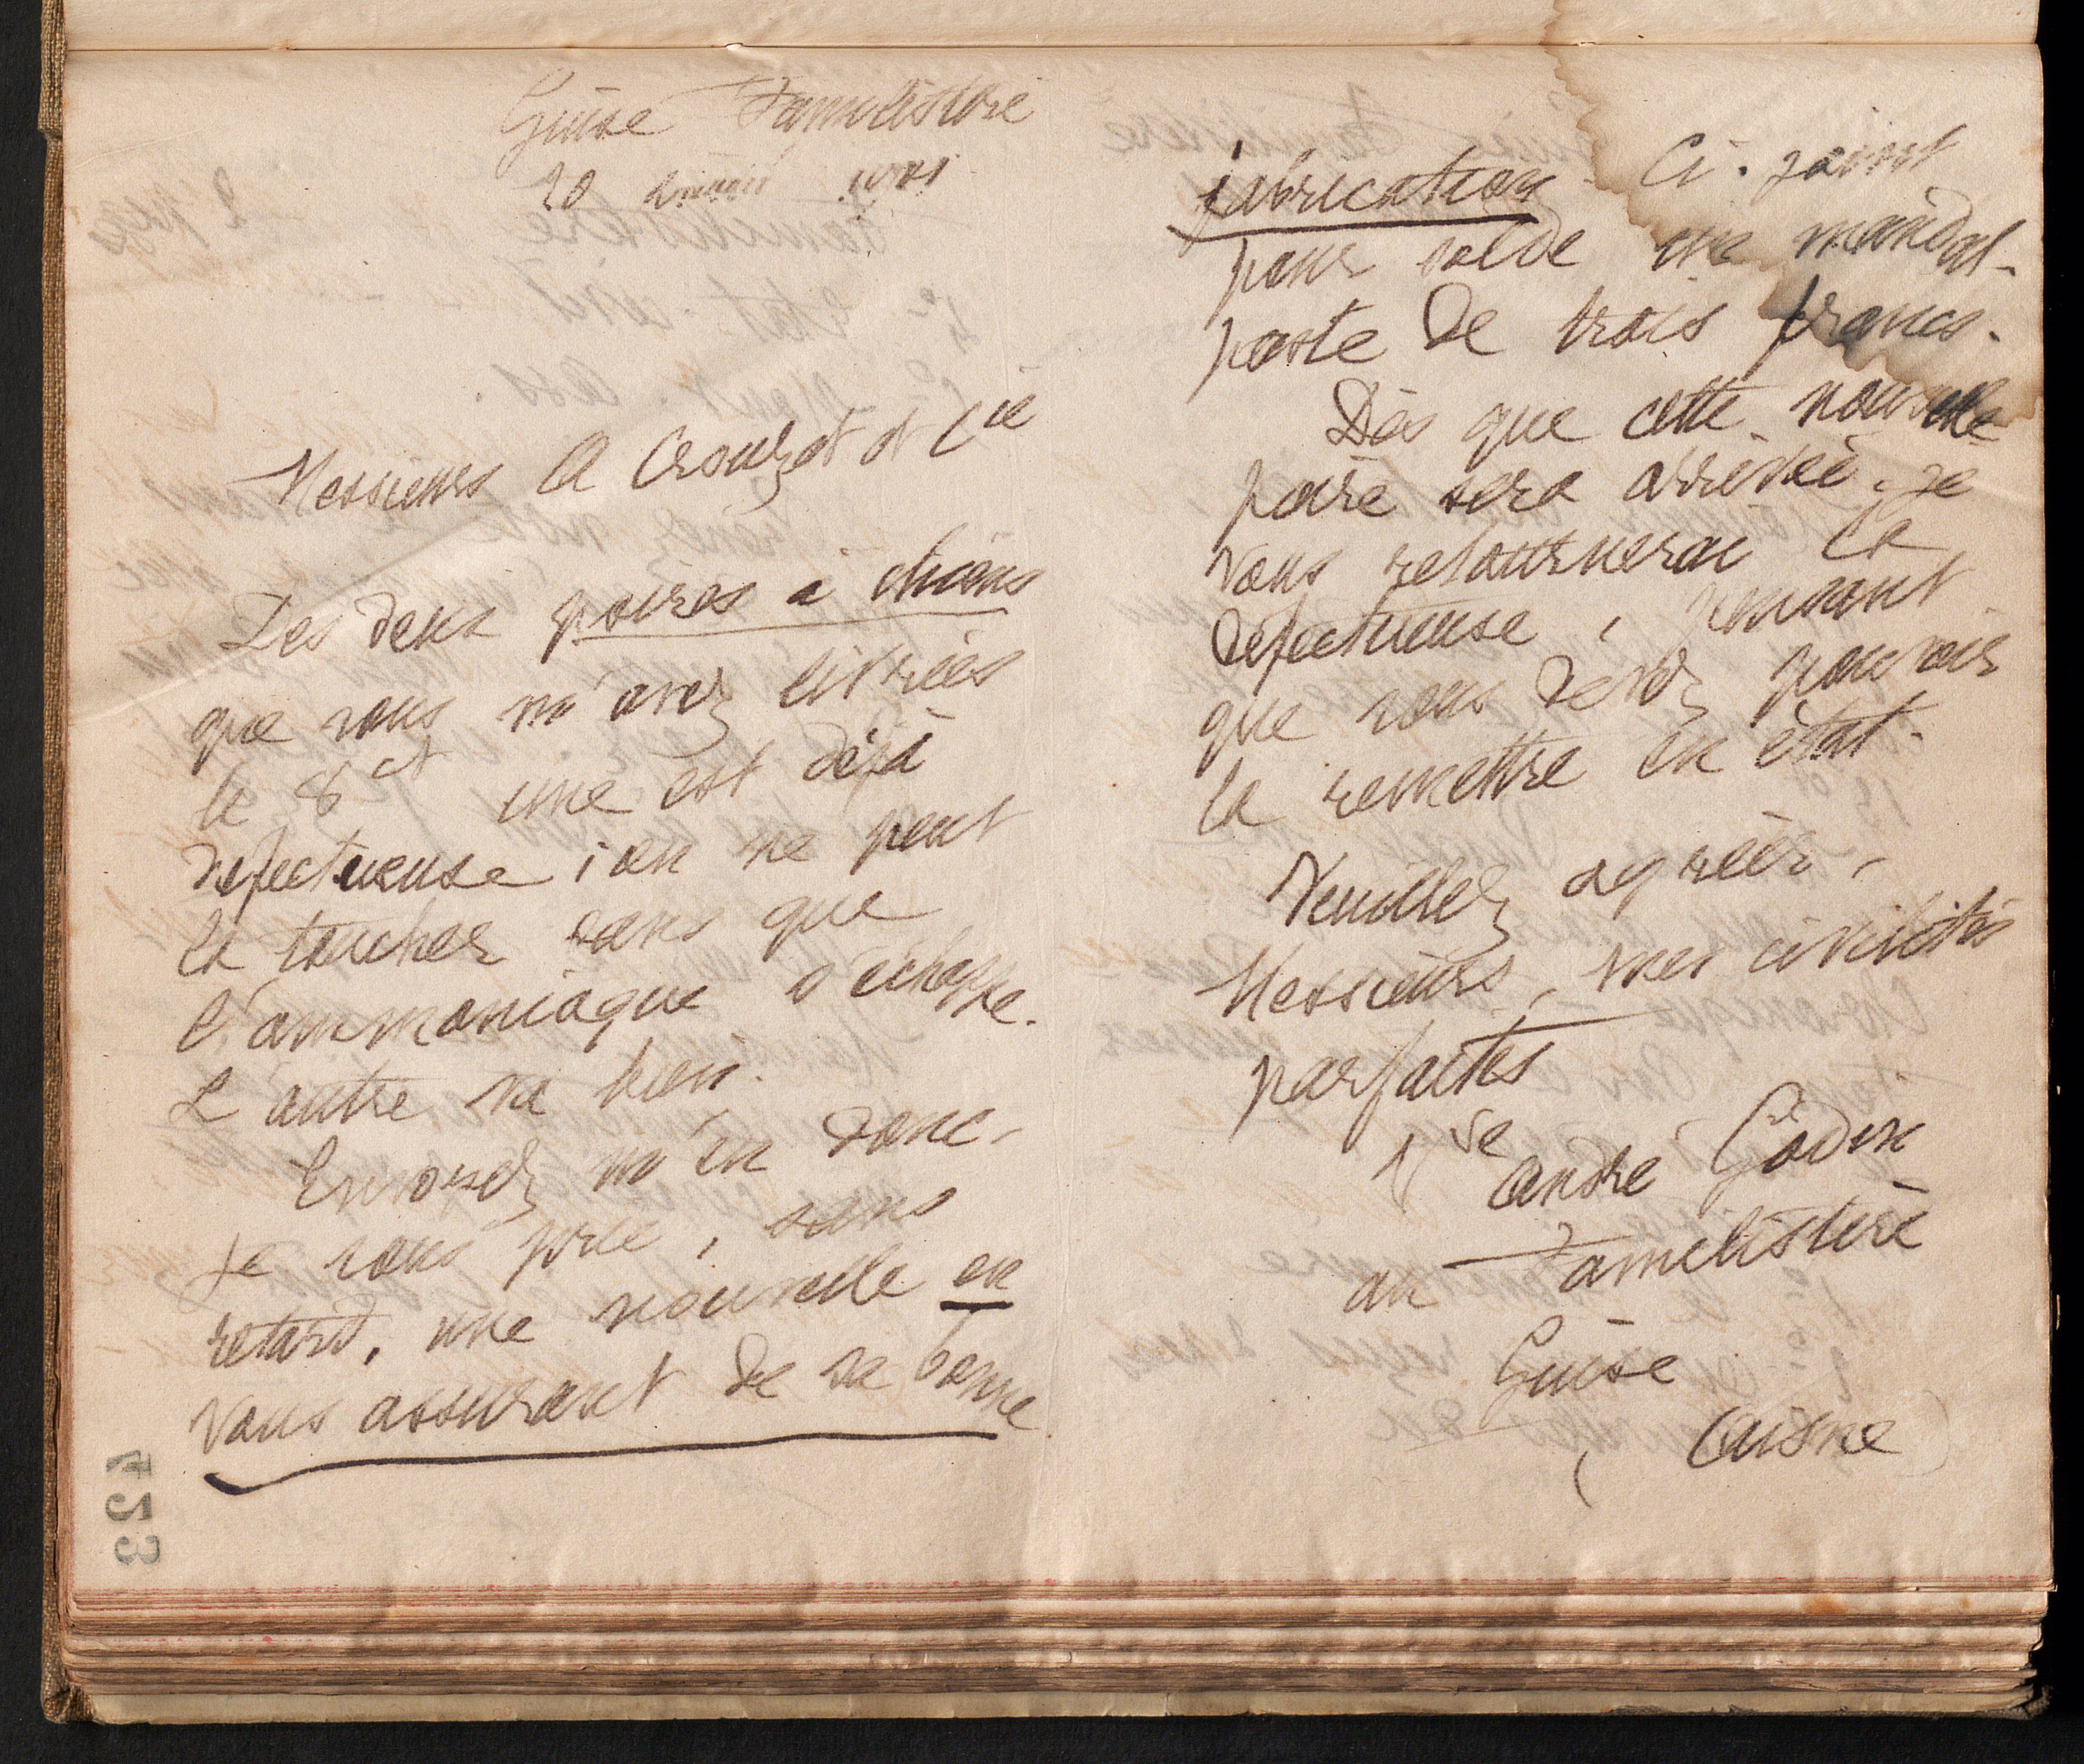 Guise Familistère
20
Messieurs A Crouzet et Cie
Des deux poires à chiens
que vous m'avez livrées
le 8 ct une est déjà
défectueuse ; on ne peut
la toucher sans que
l'ammoniaque s'échappe.
L'autre va bien.
Envoyez m'en donc,
je vous prie, sans
retard, une nouvelle en
vous assurant de sa bonne
fabrication. Ci-joint
pour solde un mandat-
poste de trois francs.
Dès que cette nouvelle
poire sera arrivée, je
vous retournerai la
défectueuse, pensant
que vous devez pouvoir
la remettre en état.
Veuillez agréer,
Messieurs, mes civilités
parfaites
Vve André Godin
au Familistère
Guise
(Aisne)
423